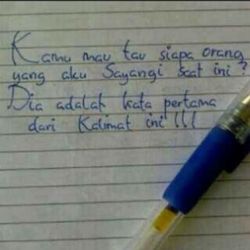 Kamu mau tau siapa orang
yang aku Sayangi Saat ini ?
Dia adalah kata pertama
dari Kalimat ini !!!